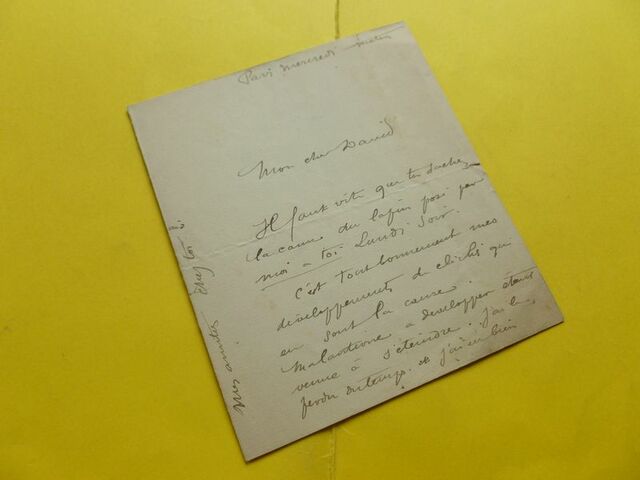 Paris mercredi matin
Mon cher David
Il faut vite que tu saches
la cause du lapin posé par
moi a toi Lundi Soir.
C'est tout bonnement mes
développements de clichés qui
en sont la cause.
Ma lanterne a developper étant
venue à s'éteindre. j'ai
perdu du temps. et j'ai eu bien
Mes amitiés chez toi